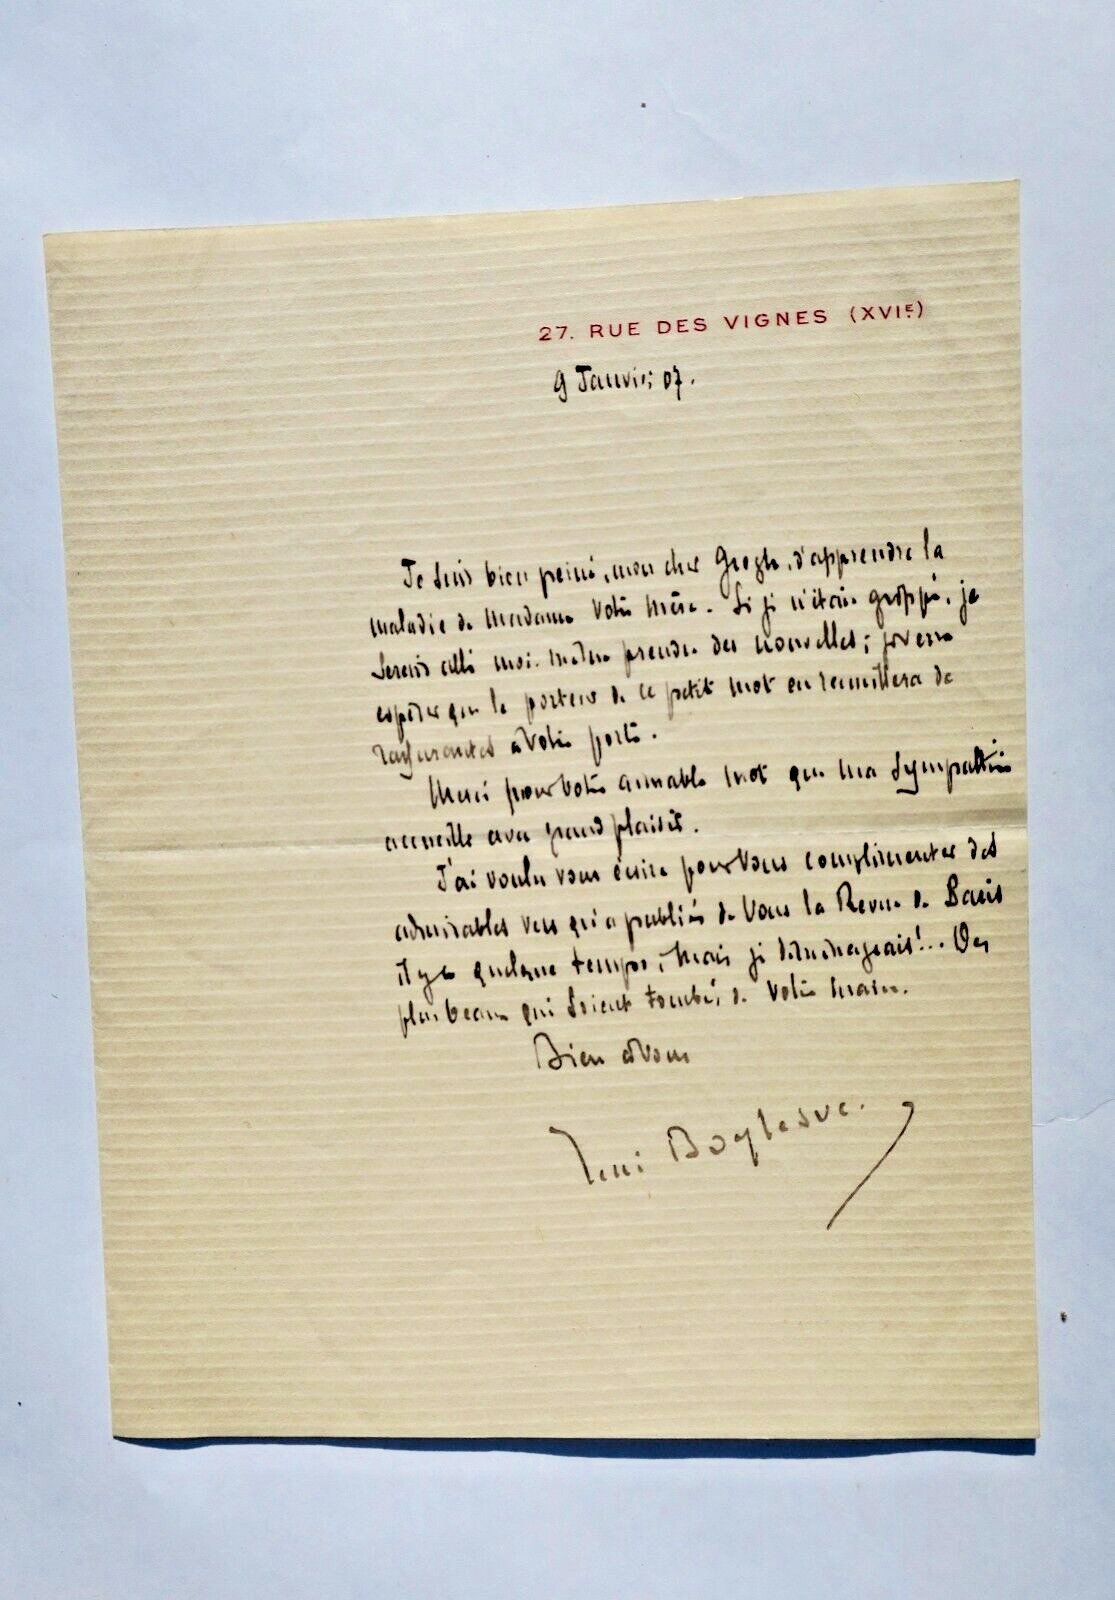 27. RUE DES VIGNES (XVIE)
9 Janvier 07.
Je suis bien peiné, mon cher Gregh, d'apprendre la
maladie de Madame votre mère. Si je n'étais grippé, je
serais allé moi-même prendre des nouvelles; j'ose
espérer que le porteur de ce petit mot en recueillera de
rassurantes à votre porte.
Merci pour votre aimable mot que ma sympathie
accueille avec grand plaisir.
J'ai voulu vous écrire pour vous complimenter des
admirables vers qu'a publiés de vous la Revue de Paris
il y a quelque temps; mais je déménageais!.. Des
plus beaux qui soient tombés de votre main.
Bien à vous
René Boylesve.